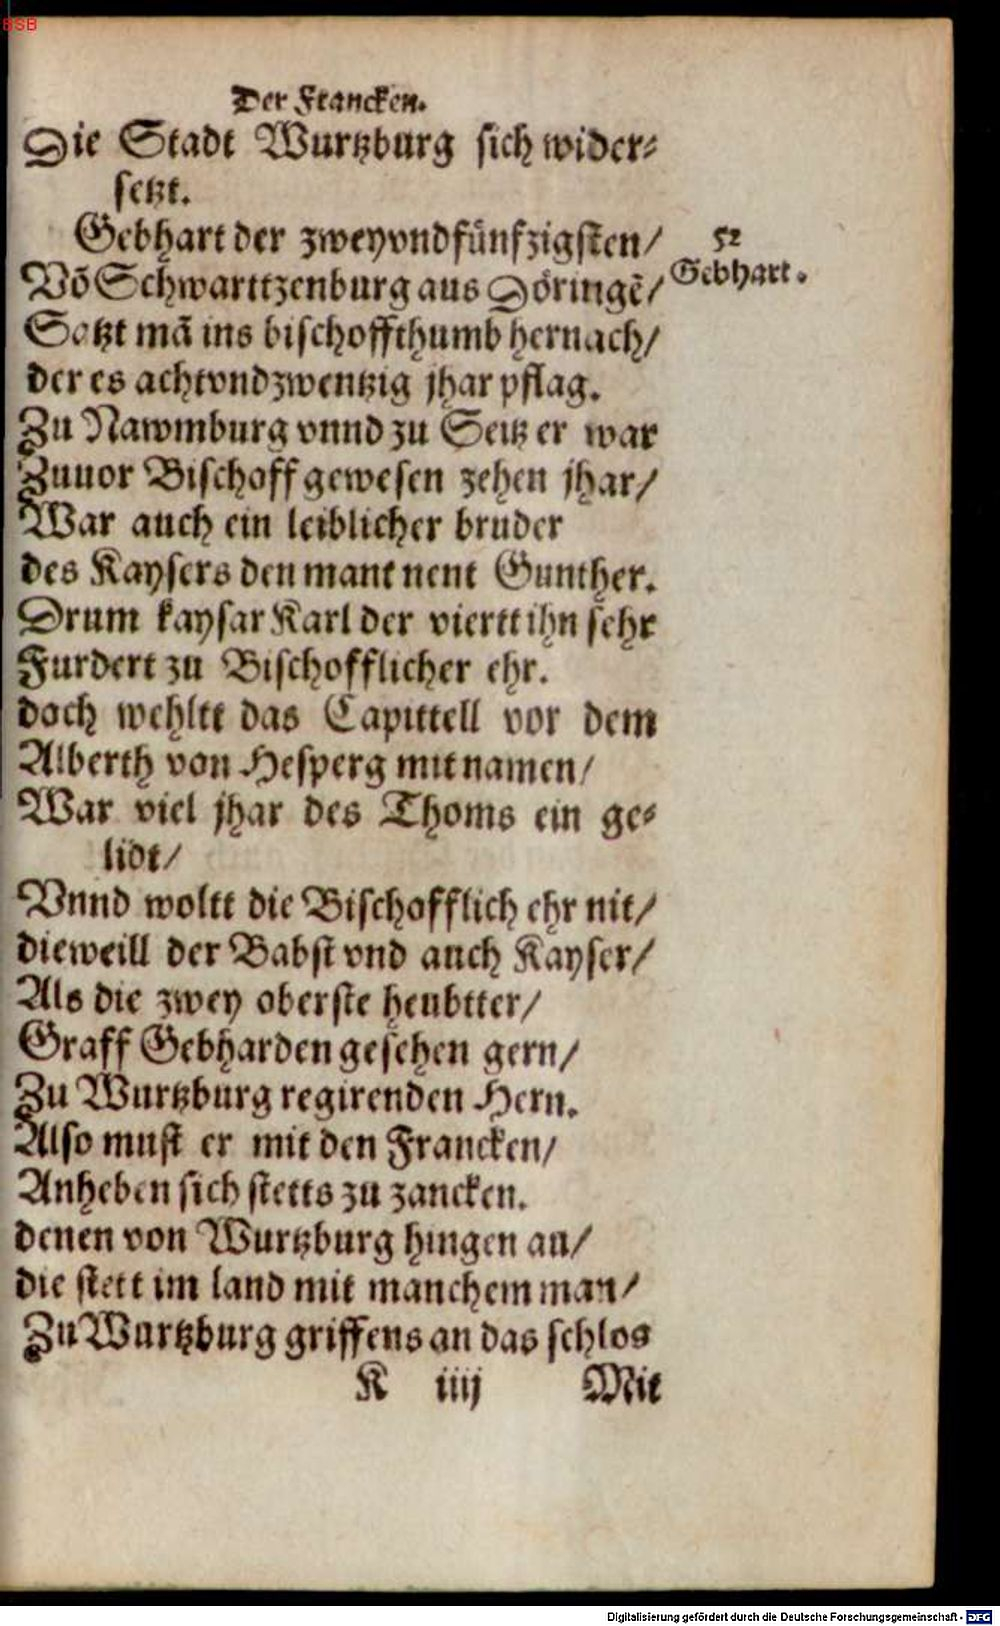 BSB
Der Francken.
Die Stadt Wurtzburg sich wider⸗
setzt.
Gebhart der zweyvndfünfzigsten/
52
Gebhart.
Võ Schwarttzenburg aus Döringẽ/
Setzt mã ins bischoffthumb hernach/
der es achtvndzwentzig jhar pflag.
Zu Nawmburg vnnd zu Seitz er war
Zuuor Bischoff gewesen zehen jhar/
War auch ein leiblicher bruder
des Kaysers den mant nent Gunther.
Drum kaysar Karl der viertt ihn sehr
Furdert zu Bischofflicher ehr.
doch wehltt das Capittell vor dem
Alberth von Hesperg mit namen/
War viel jhar des Thoms ein ge⸗
lidt/
Vnnd woltt die Bischofflich ehr nit/
dieweill der Babst vnd auch Kayser/
Als die zwey oberste heubtter/
Graff Gebharden gesehen gern/
Zu Wurtzburg regirenden Hern.
Also must er mit den Francken/
Anheben sich stetts zu zancken.
denen von Wurtzburg hingen an/
die stett im land mit manchem man/
Zu Wurtzburg griffens an das schlos
K iiij Mit
Digitalisierung gefördert durch die Deutsche Forschungsgemeinschaft - DFG